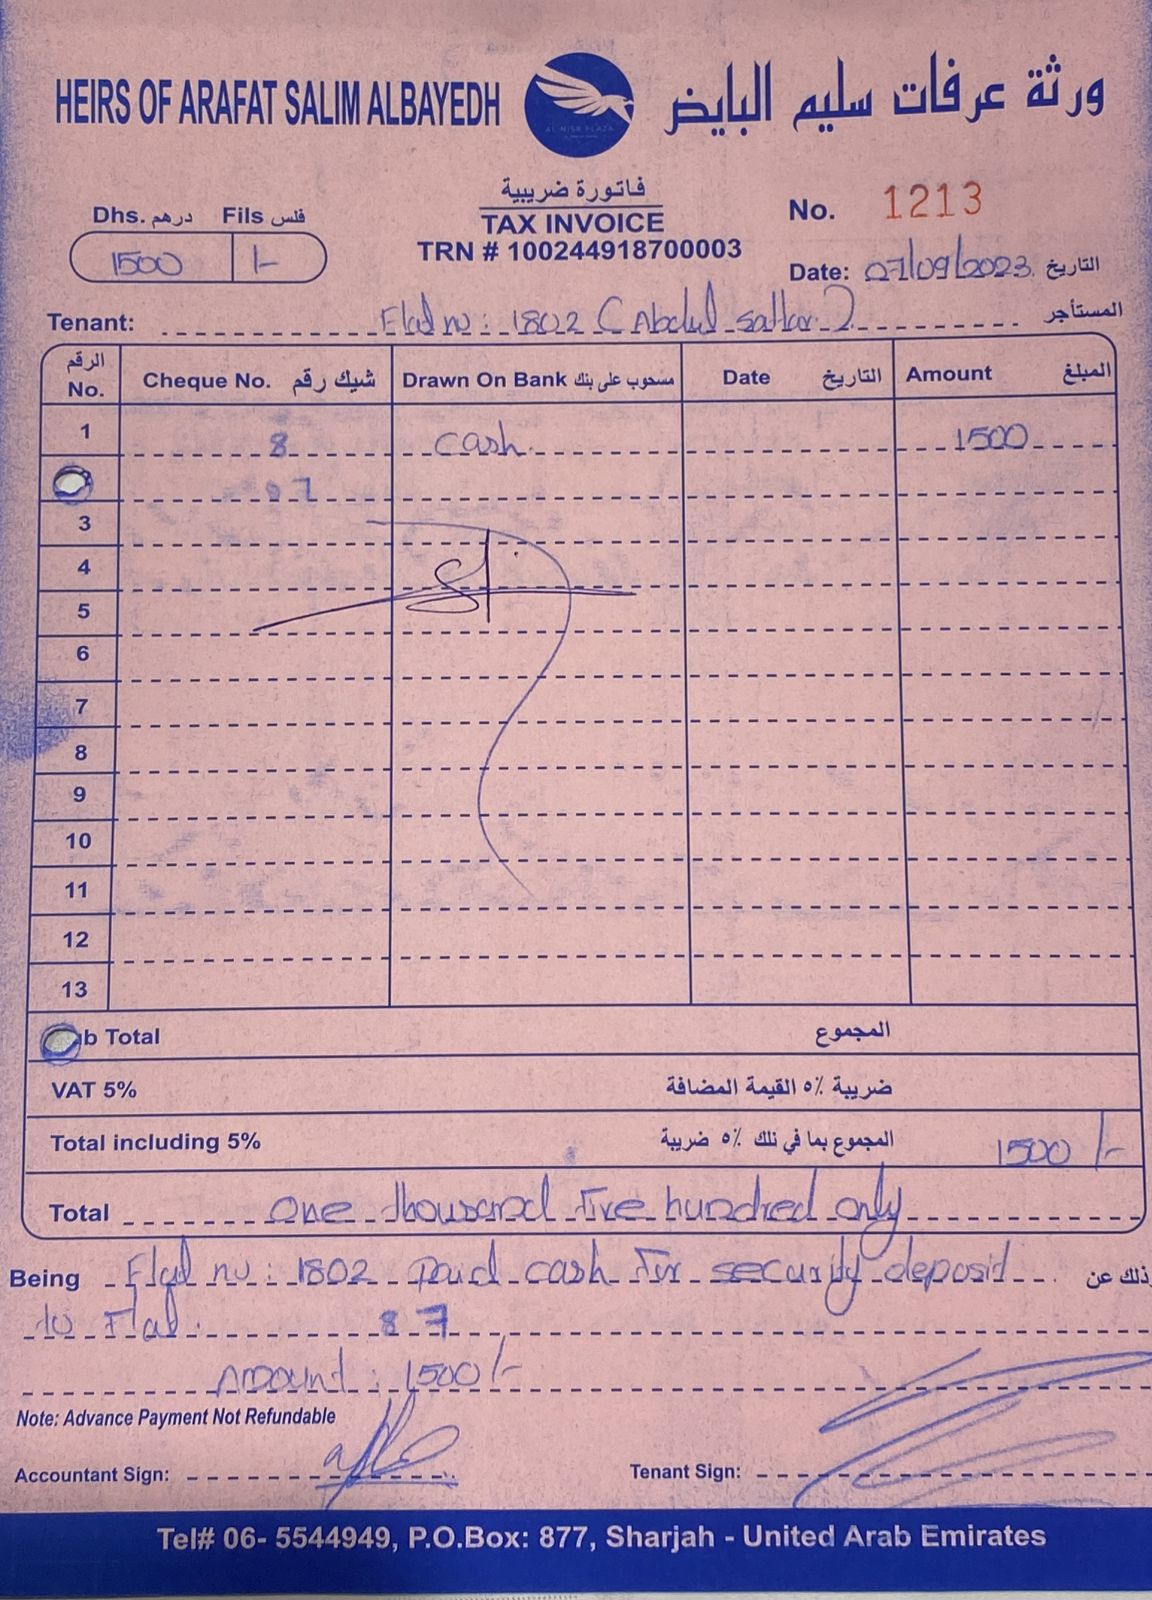 HEIRS OF ARAFAT SALIM ALBAYEDH
ورثة عرفات سليم البايض
AL NISR PLAZA
فاتورة ضريبية
TAX INVOICE
TRN # 100244918700003
Dhs. درهم Fils فلس
1500 /-
No. 1213
Date: 07/09/2023 التاريخ
Tenant: Flat no: 1802 (Abdul sattar) المستأجر
الرقم No. Cheque No. شيك رقم Drawn On Bank مسحوب على بنك Date التاريخ Amount المبلغ
1 8 cash 1500
87
3
4
5
6
7
8
9
10
11
12
13
b Total المجموع
VAT 5% ضريبة ٥٪ القيمة المضافة
Total including 5% المجموع بما في ذلك ٥٪ ضريبة 1500 /-
Total one thousand five hundred only
Being Flat no: 1802 paid cash for security deposit وذلك عن
to Flat. 87
Amount: 1500/-
Note: Advance Payment Not Refundable
Accountant Sign:
Tenant Sign:
Tel# 06- 5544949, P.O.Box: 877, Sharjah - United Arab Emirates